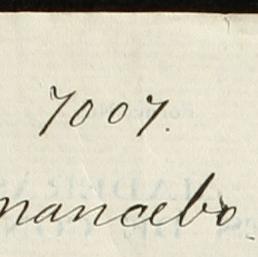 7007.
mancebo.